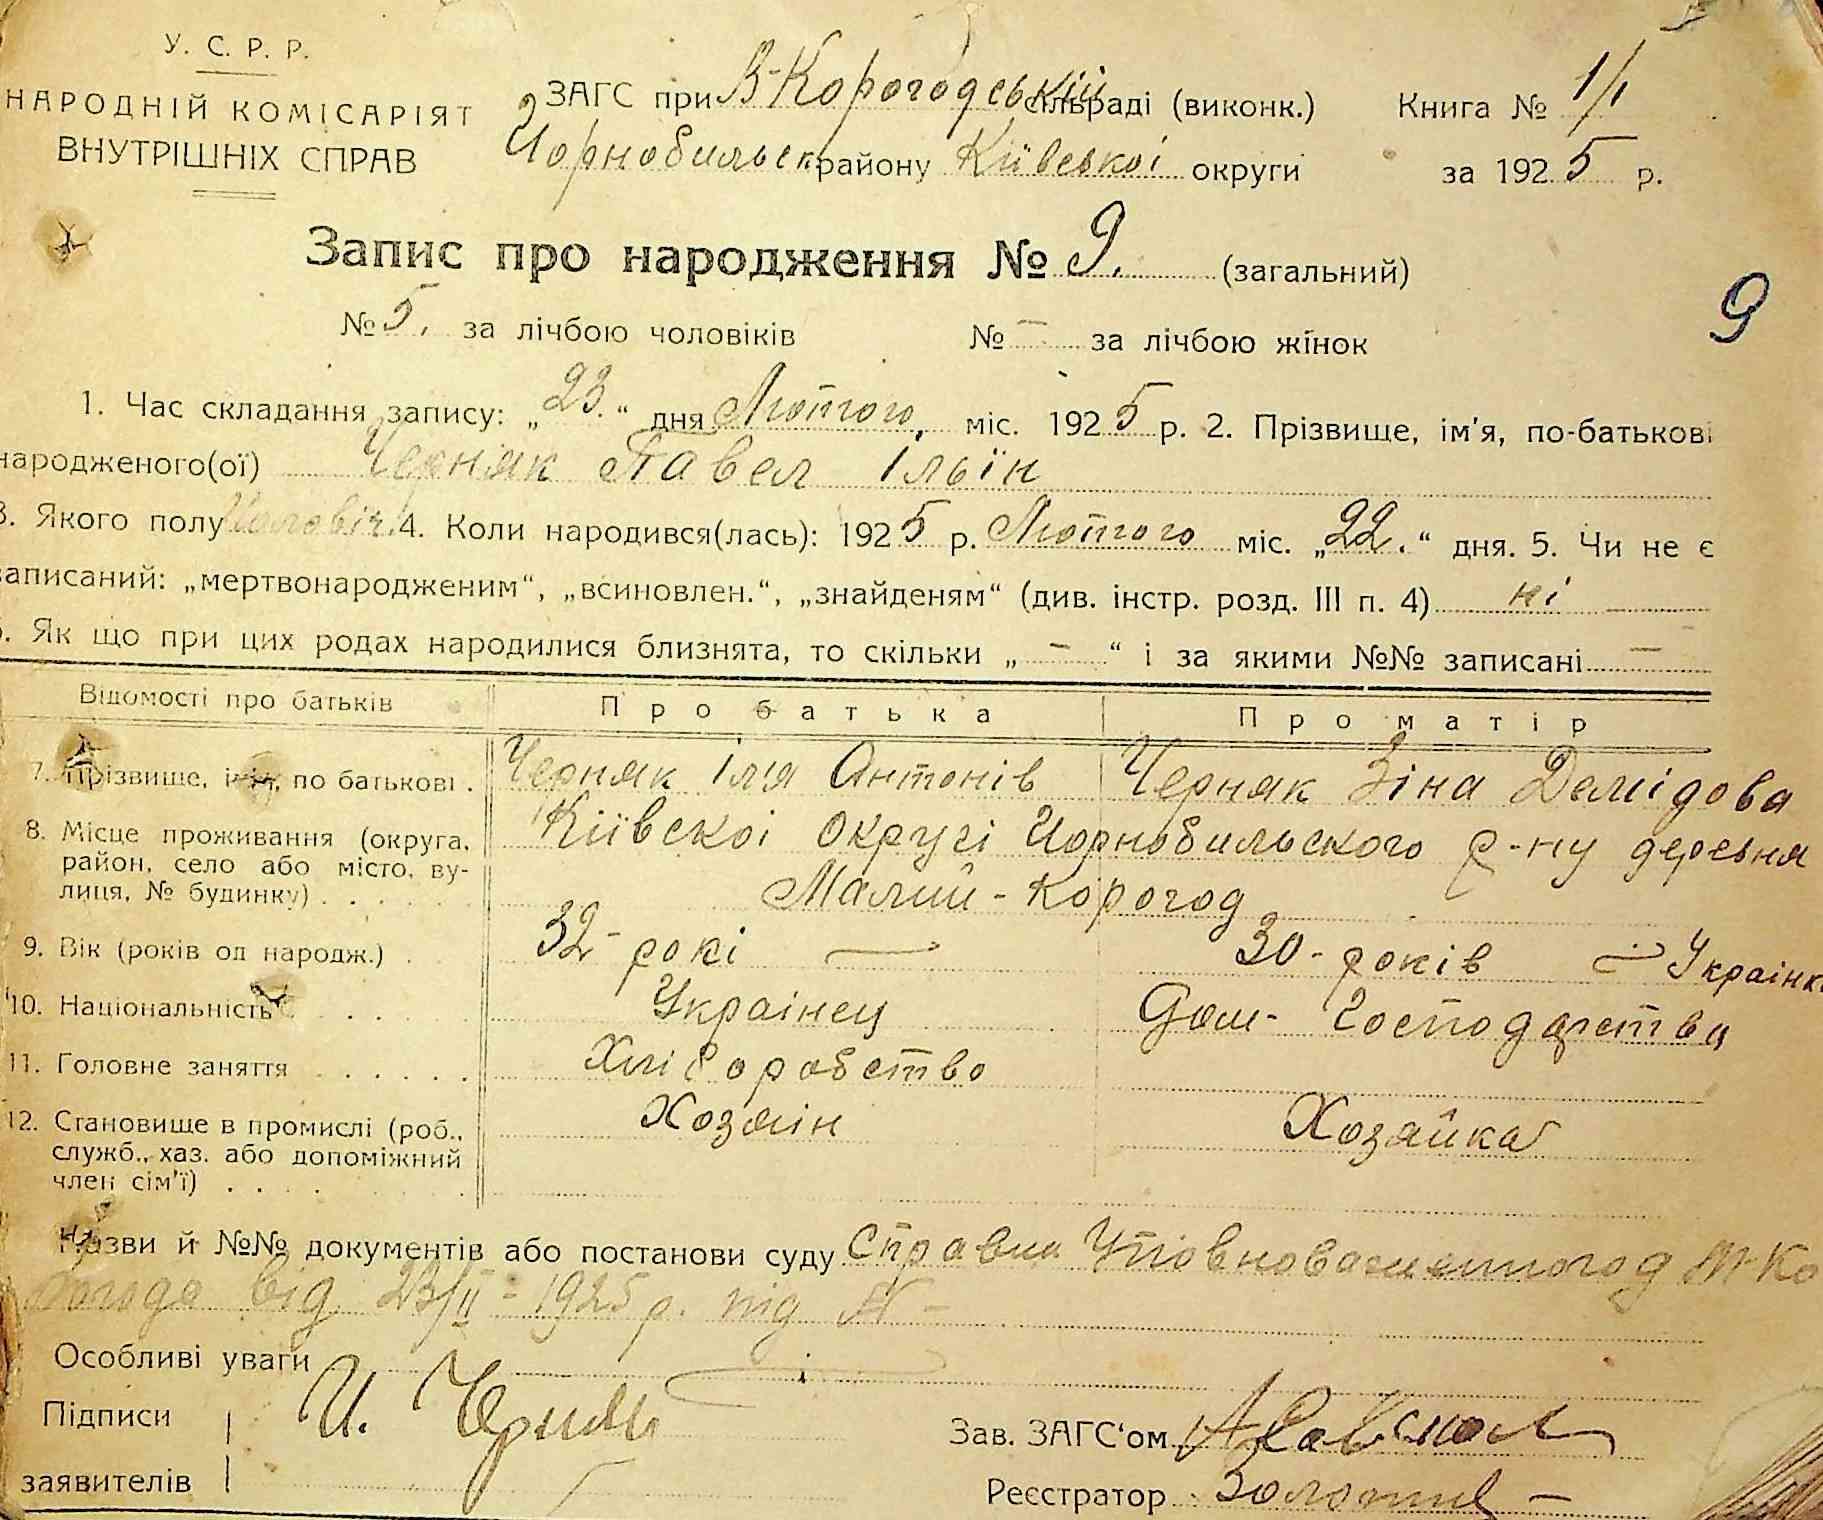 У. С. Р. Р.
НАРОДНІЙ КОМІСАРІЯТ
ВНУТРІШНІХ СПРАВ
ЗАГС при В-Корогодській сільраді (виконк.)
Чорнобильск району Київської округи
Книга № 1/1
за 1925 р.
Запис про народження № 9. (загальний)
9
№ 5. за лічбою чоловіків № – за лічбою жінок
1. Час складання запису: „23.“ дня Лютого, міс. 1925 р. 2. Прізвище, ім'я, по-батькові
народженого(ої) Черняк Павел Ільїн
3. Якого полу Чоловіч. 4. Коли народився(лась): 1925 р. Лютого міс. „22.“ дня. 5. Чи не є
записаний: „мертвонародженим“, „всиновлен.“, „знайденям“ (див. інстр. розд. III п. 4) ні
6. Як що при цих родах народилися близнята, то скільки „ – “ і за якими №№ записані –
Відомості про батьків Про батька Про матір
7. Прізвище, ім'я, по батькові . Черняк Ілія Антонів Черняк Зіна Демідова
8. Місце проживання (округа, район, село або місто, вулиця, № будинку) . . . . Київскої округі Чорнобильского р-ну деревня
Малий-Корогод
9. Вік (років од народж.) . 32- рокі 30- років Українка
10. Національність . . . Украінец Дом- Господарства
11. Головне заняття . . . . . . Хліборобство
12. Становище в промислі (роб., служб., хаз. або допоміжний член сім'ї) . . . . Хозяін Хозяйка
Назви й №№ документів або постанови суду Справка М-Ко
рогода від 23/II-1925 р. під №-
Особливі уваги
Підписи И. Черняк
заявителів
Зав. ЗАГС'ом
Реєстратор